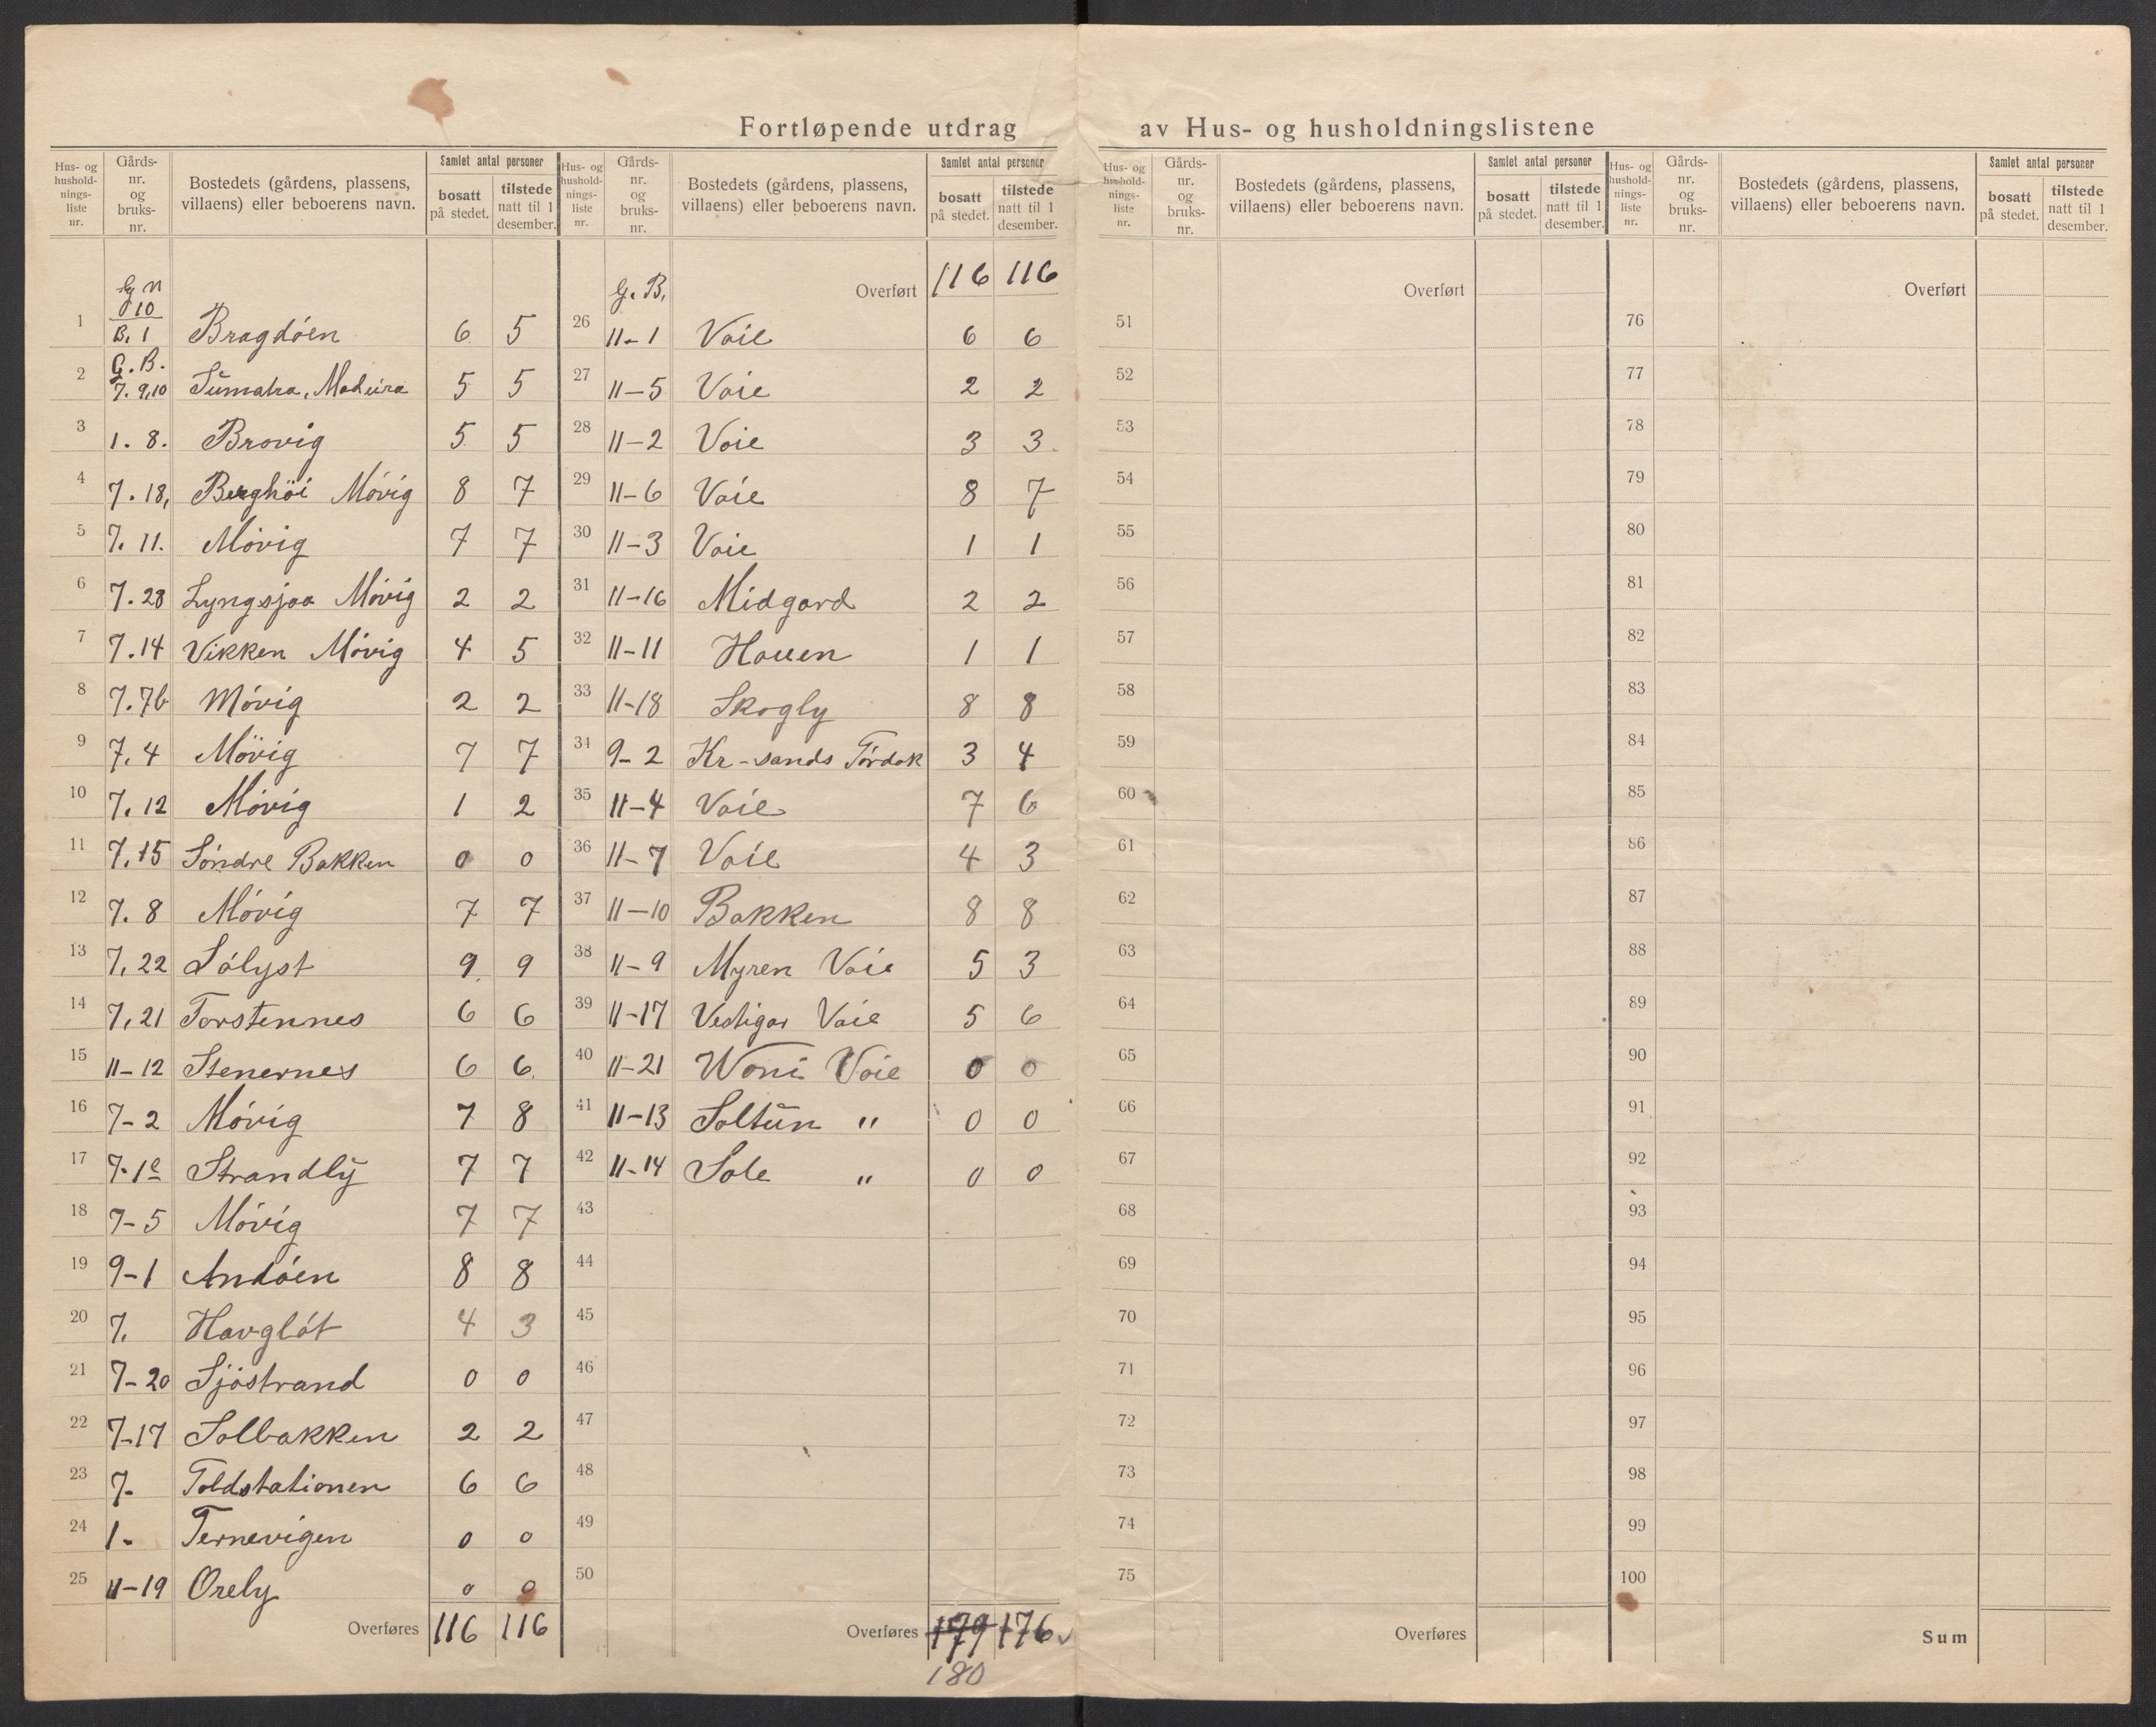 Fortløpende utdrag av Hus- og husholdningslistene
Hus- og husholdnings-liste nr. | Gårds-nr. og bruks-nr. | Bostedets (gårdens, plassens, villaens) eller beboerens navn. | Samlet antal personer | bosatt på stedet. | tilstede natt til 1 desember.
G n 10
1 B. 1 Bragdóen 6 5
G. B.
2 7. 9,10 Sumatra, Madeira 5 5
3 1. 8. Brovig 5 5
4 7. 18, Berghöi Móvig 8 7
5 7. 11. Móvig 7 7
6 7. 28 Lyngsjaa Móvig 2 2
7 7. 14 Vikken Móvig 4 5
8 7. 7b Móvig 2 2
9 7. 4 Móvig 7 7
10 7. 12 Móvig 1 2
11 7. 15 Söndre Bakken 0 0
12 7. 8 Móvig 7 7
13 7. 22 Sólyst 9 9
14 7, 21 Torstennes 6 6
15 11-12 Stenernes 6 6
16 7-2 Móvig 7 8
17 7-1e Strandly 7 7
18 7-5 Móvig 7 7
19 9-1 Andóen 8 8
20 7. Havglót 4 3
21 7-20 Sjóstrand 0 0
22 7-17 Solbakken 2 2
23 7- Toldstationen 6 6
24 1- Ternevigen 0 0
25 11-19 Orely 0 0
Overføres 116 116
Hus- og husholdnings-liste nr. | Gårds-nr. og bruks-nr. | Bostedets (gårdens, plassens, villaens) eller beboerens navn. | Samlet antal personer | bosatt på stedet. | tilstede natt til 1 desember.
G. B. Overført 116 116
26 11-1 Voie 6 6
27 11-5 Voie 2 2
28 11-2 Voie 3 3
29 11-6 Voie 8 7
30 11-3 Voie 1 1
31 11-16 Midgard 2 2
32 11-11 Hauen 1 1
33 11-18 Skogly 8 8
34 9-2 Kr-sands Tórdok 3 4
35 11-4 Voie 7 6
36 11-7 Voie 4 3
37 11-10 Bakken 8 8
38 11-9 Myren Voie 5 3
39 11-17 Vestigar Voie 5 6
40 11-21 Woni Voie 0 0
41 11-13 Soltun " 0 0
42 11-14 Sole " 0 0
43
44
45
46
47
48
49
50
Overføres 179 176
180
Hus- og husholdnings-liste nr. | Gårds-nr. og bruks-nr. | Bostedets (gårdens, plassens, villaens) eller beboerens navn. | Samlet antal personer | bosatt på stedet. | tilstede natt til 1 desember.
Overført
51
52
53
54
55
56
57
58
59
60
61
62
63
64
65
66
67
68
69
70
71
72
73
74
75
Overføres
Hus- og husholdnings-liste nr. | Gårds-nr. og bruks-nr. | Bostedets (gårdens, plassens, villaens) eller beboerens navn. | Samlet antal personer | bosatt på stedet. | tilstede natt til 1 desember.
Overført
76
77
78
79
80
81
82
83
84
85
86
87
88
89
90
91
92
93
94
95
96
97
98
99
100
Sum